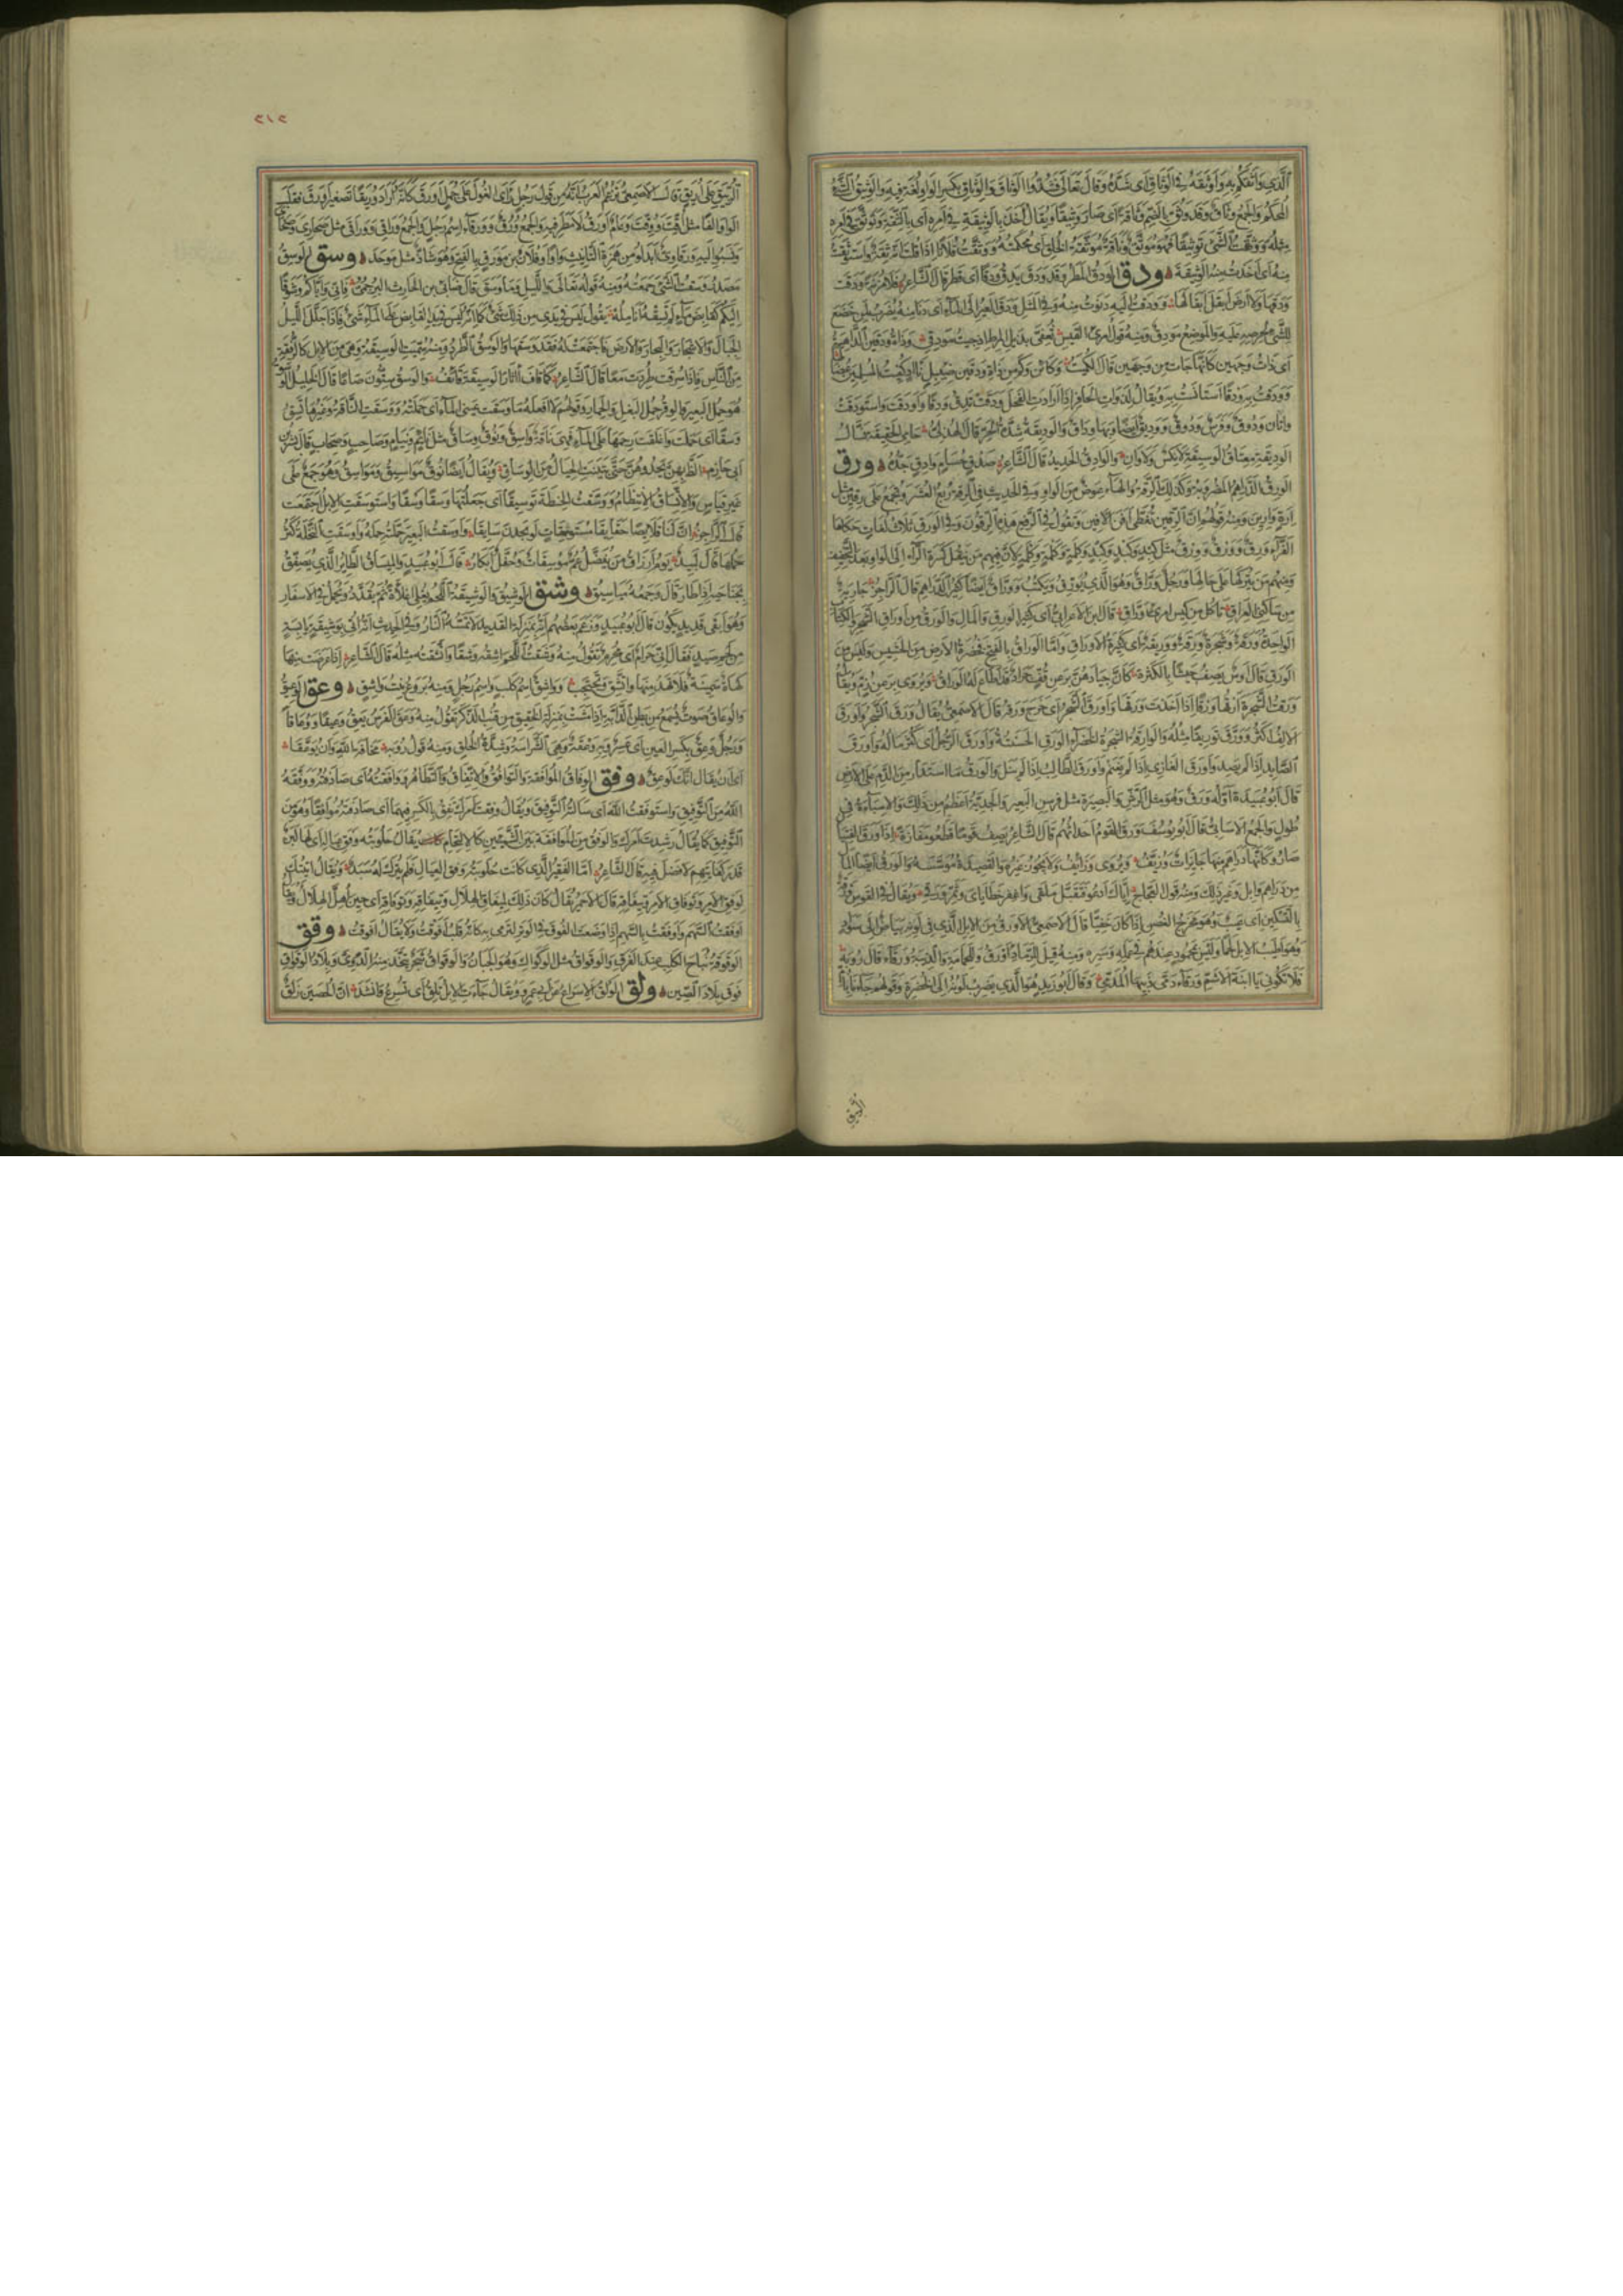 الذي واثقكم به واوثقه في الوثاق اي شده وقال تعالى فشدوا الوثاق والوثاق بكسر الواو لغة فيه والوثيق الشئ
المحكم والجمع وثاق وقد وثق بالضم وثاقة اي صار وثيقا ويقال اخذ بالوثيقة في امره اي بالثقة وتوثق في امره
مثله ووثقت الشئ توثيقا فهو موثق وناقة موثقة الخلق اي محكمته ووثقت فلانا اذا قلت انه ثقة واستوثقت
منه اي اخذت منه الوثيقة ودق الودق المطر وقد ودق يدق ودقا اي قطر قال الشاعر فلا مزنة ودقت
ودقها ولا ارض ابقل ابقالها وودقت اليه دنوت منه وفي المثل ودق العير الى الماء اي دنا منه يضرب لمن خضع
للشئ لحرصه عليه والموضع مودق ومنه قول امرئ القيس تعفي بذيل المرط اذ جئت مودقي وذات ودقين الداهية
اي ذات وجهين كانها جاءت من وجهين قال الكميت وكائن وكم من ذات ودقين ضئبل نآد كفيت المسلمين عضالها
وودقت به ودقا استأنست به ويقال لذوات الحافر اذا ارادت الفحل ودقت تدق ودقا واودقت واستودقت
واتان ودوق وفرس ودوق ووديق ايضا وبها وداق والوديقة شدة الحر قال الهذلي حامي الحقيقة نسال
الوديقة معتاق الوسيقة لا نكس ولا وان والوادق الحديد قال الشاعر صدق حسام وادق حده ورق
الورق الدراهم المضروبة وكذلك الرقة والهاء عوض من الواو وفي الحديث في الرقة ربع العشر وتجمع على رقين مثل
ارة وارين ومنه قولهم ان الرقين تغطي افن الافين وتقول في الرفع هذه الرقون وفي الورق ثلاث لغات حكاها
الفراء ورق وورق وورق مثل كبد وكبد وكبد وكلمة وكلمة وكلمة لان فيهم من ينقل كسرة الراء الى الواو بعد التخفيف
ومنهم من يتركها على حالها ورجل وراق وهو الذي يورق ويكتب ووراق ايضا كثير الدراهم قال الراجز جارية
من ساكني العراق تاكل من كيس امرئ وراق قال ابن الاعرابي اي كثير الورق والمال والورق من اوراق الشجر والكتاب
الواحدة ورقة وشجرة ورقة ووريقة اي كثيرة الاوراق واما الوراق بالفتح فخضرة الارض من الحشيش وليس من
الورق قال اوس يصف جيشا بالكثرة كان جيادهن برعن قف جراد قد اطاع له الوراق ويروى برعن زم
ورقت الشجرة ارقها ورقا اذا اخذت ورقها واورق الشجر اي خرج ورقه قال الاصمعي يقال ورق الشجر واورق
والالف اكثر وورق توريقا مثله والوارقة الشجرة الخضراء الورق الحسنة واورق الرجل اي كثر ماله واورق
الصائد اذا لم يصد واورق الغازي اذا لم يغنم واورق الطالب اذا لم ينل والورق ما استدار من الدم على الارض
قال ابو عبيدة اوله ورق وهو مثل الرش والبصيرة مثل فرسن البعير والجدية اعظم من ذلك والاسباءة في
طول والجمع الاسابي قال ابو يوسف ورق القوم احداثهم قال الشاعر يصف قوما قطعوا مفازة اذا ورق الفتيان
صاروا كانها دراهم منها جائزات وزيف ويروى وزائف
من دراهم وابل وغير ذلك ومنه قول العجاج اياك ادعو فتقبل ملقي واغفر خطاياي وثمر ورقي ويقال في القوس ورقة
بالتسكين اي عيب وهو مخرج الغصن اذا كان خفيا قال الاصمعي الاورق من الابل الذي في لونه بياض الى سواد
وهو اطيب الابل لحما وليس بمحمود عندهم في عمله وسيره ومنه قيل للرماد اورق وللحمامة والذئبة ورقاء قال رؤبة
فلا تكوني يا ابنة الاشم ورقاء دمى ذئبها المدمي وقال ابو زيد هو الذي يضرب لونه الى الخضرة وقولهم جاءنا بام
الربيق
٢١٢
الربيق على اريق قال الاصمعي تزعم العرب انه من قول رجل راى الغول على جمل اورق كانه اراد وريقا تصغير اورق فقلب
الواو الفا مثل اقتت ووقتت وعام اورق لا مطر فيه والجمع ورق وورقاء اسم رجل والجمع وراق ووراقى مثل صحارى
ونسبوا اليه ورقاوي ابدلوا من همزة التأنيث واوا وفلان بن مورق بالفتح وهو شاذ مثل موحد وسق الوسق
مصدر وسقت الشئ جمعته ومنه قوله تعالى والليل وما وسق قال ضابئ بن الحارث البرجمي فاني واياكم وشوقا
اليكم كقابض ماء لم تسقه انامله يقول ليس في يدي من ذلك شئ كما انه ليس في يد القابض على الماء شئ فاذا جلل الليل
الجبال والاشجار والبحار والارض فاجتمعت له فقد وسقها والوسق الطرد ومنه سميت الوسيقة وهي من الابل كالرفقة
من الناس فاذا سرقت طردت معا قال الشاعر كما قاف اثار الوسيقة قائف والوسق ستون صاعا قال الخليل الوسق
هو حمل البعير والوقر حمل البغل والحمار وقولهم لا افعله ما وسقت عيني الماء اي حملته ووسقت الناقة وغيرها تسق
وسقا اي حملت واغلقت رحمها على الماء فهي ناقة واسق ونوق وساق مثل نائم ونيام وصاحب وصحاب قال بشر بن
ابي خازم الظ بهن يحدوهن حتى تبينت الحيال من الوساق ويقال ايضا نوق مواسيق ومواسق وهو جمع على
غير قياس والاتساق الانتظام ووسقت الحنطة توسيقا اي جعلتها وسقا وسقا واستوسقت الابل اجتمعت
قال الراجز ان لنا قلائصا حقائقا مستوسقات لو يجدن سائقا واوسقت البعير حملته حمله واوسقت النخلة كثر
حملها قال لبيد يوم ارزاق من يفضل عم موسقات وحفل ابكار قال ابو عبيد والميساق الطائر الذي يصفق
بجناحيه اذا طار قال وجمعه مياسيق وشق الوشيق والوشيقة اللحم يغلى اغلاءة ثم يقدد ويحمل في الاسفار
وهو ابقى قديد يكون قال ابو عبيد وزعم بعضهم انه بمنزلة القديد لا تمسه النار وفي الحديث انه اتي بوشيقة يابسة
من لحم صيد فقال اني حرام اي محرم تقول منه وشقت اللحم اشقه وشقا واتشقته مثله قال الشاعر اذا عرضت منها
كهاة سمينة فلا تهد منها واتشق وتجبجب وواشق اسم كلب واسم رجل ومنه بروع بنت واشق وعق الوعيق
والوعاق صوت يسمع من بطن الدابة اذا مشت بمنزلة الخقيق من قنب الذكر تقول منه وعق الفرس يعق وعيقا ووعاقا
ورجل وعق بكسر العين اي عسر وبه وعقة وهي الشراسة وشدة الخلق ومنه قول رؤبة مخافة الله وان يوعقا
اي ان يقال انك لوعق وفق الوفاق الموافقة والتوافق والاتفاق والتظاهر ووافقته اي صادفته ووفقه
الله من التوفيق واستوفقت الله اي سالت التوفيق ويقال وفقت امرك تفق بالكسر فيهما اي صادفته موافقا وهو من
التوفيق كما يقال رشدت امرك والوفق من الموافقة بين الشيئين كالالتحام يقال حلوبته وفق عياله اي لها لبن
قدر كفايتهم لا فضل فيه قال الشاعر اما الفقير الذي كانت حلوبته وفق العيال فلم يترك له سبد ويقال اتيتك
لوفق الامر وتوفاق الامر وتيفاقه قال الاحمر يقال كان ذلك لميفاق الهلال وتيفاقه وتوفاقه اي حين اهل الهلال
اوفقت السهم واوفقت بالسهم اذا وضعت الفوق في الوتر لترمي به كانه قلب افوقت ولا يقال افوقت وقق
الوقوقة نباح الكلب عند الفرق والوقواق مثل الوكواك وهو الجبان والوقواق شجر يتخذ منه الدوي وبلاد الوقواق
فوق بلاد الصين ولق الولق الاسراع عن ابي عمرو ويقال جاءت الابل تلق اي تسرع وانشد ان الحصين زلق